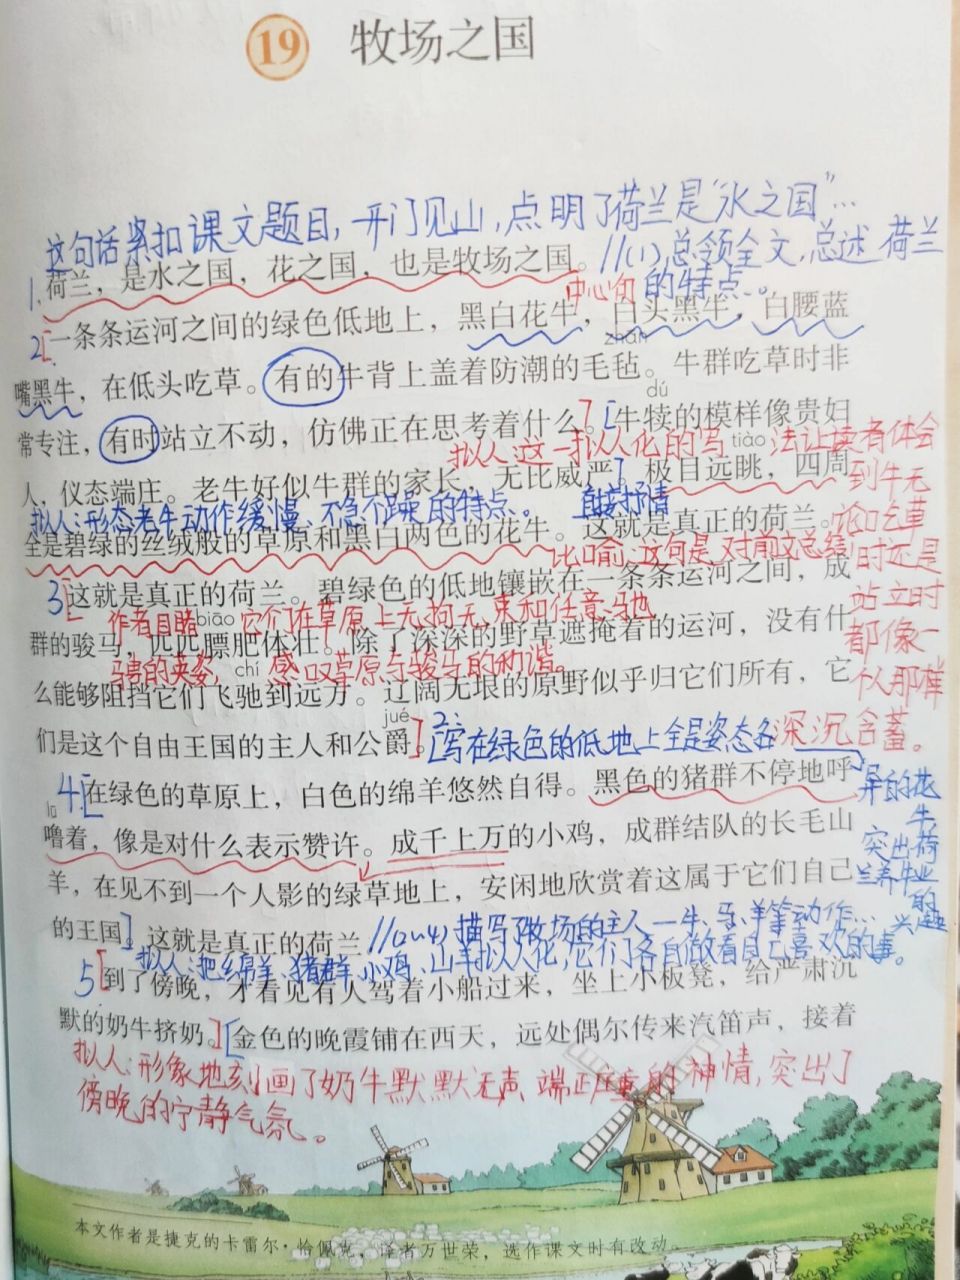 19 牧场之国
这句话紧扣课文题目，开门见山，点明了荷兰是“水之国”…
1.荷兰，是水之国，花之国，也是牧场之国。//(1)总领全文，总述荷兰
中心句 的特点。
2[一条条运河之间的绿色低地上，黑白花牛，白头黑牛，白腰蓝
zhān
嘴黑牛，在低头吃草。有的牛背上盖着防潮的毛毡。牛群吃草时非
dú
常专注，有时站立不动，仿佛正在思考着什么。][牛犊的模样像贵妇
拟人：这一拟人化的写 tiào 法让读者体会
人，仪态端庄。老牛好似牛群的家长，无比威严。极目远眺，四周
到牛无
拟人：形态老牛动作缓慢、不急不躁的特点。 直接抒情
论吃草
全是碧绿的丝绒般的草原和黑白两色的花牛。这就是真正的荷兰。
比喻：这句是对前文总结
时还是
3[这就是真正的荷兰。碧绿色的低地镶嵌在一条条运河之间，成
站立时
作者目睹 biāo 它们在草原上无拘无束和任意驰
群的骏马，匹匹膘肥体壮。除了深深的野草遮掩着的运河，没有什
都像一
骋的英姿， chí 感叹草原与骏马的和谐。
么能够阻挡它们飞驰到远方。辽阔无垠的原野似乎归它们所有，它
个人那样
jué
们是这个自由王国的主人和公爵。]
深沉含蓄。
[2：写在绿色的低地上全是姿态各
异的花
牛
突出荷
兰养牛业
的
兴
4[在绿色的草原上，白色的绵羊悠然自得。黑色的猪群不停地呼
lū
噜着，像是对什么表示赞许。成千上万的小鸡，成群结队的长毛山
羊，在见不到一个人影的绿草地上，安闲地欣赏着这属于它们自己
的王国。]这就是真正的荷兰 //(2~4)描写了牧场的主人—牛、马、羊等动作…
拟人：把绵羊、猪群、小鸡、山羊拟人化，它们各自做着自己喜欢的事。
5[到了傍晚，才看见有人驾着小船过来，坐上小板凳，给严肃沉
默的奶牛挤奶。][金色的晚霞铺在西天，远处偶尔传来汽笛声，接着
拟人：形象地刻画了奶牛默默无声、端正庄重的神情，突出了
傍晚的宁静气氛。
本文作者是捷克的卡雷尔·恰佩克，译者万世荣，选作课文时有改动。